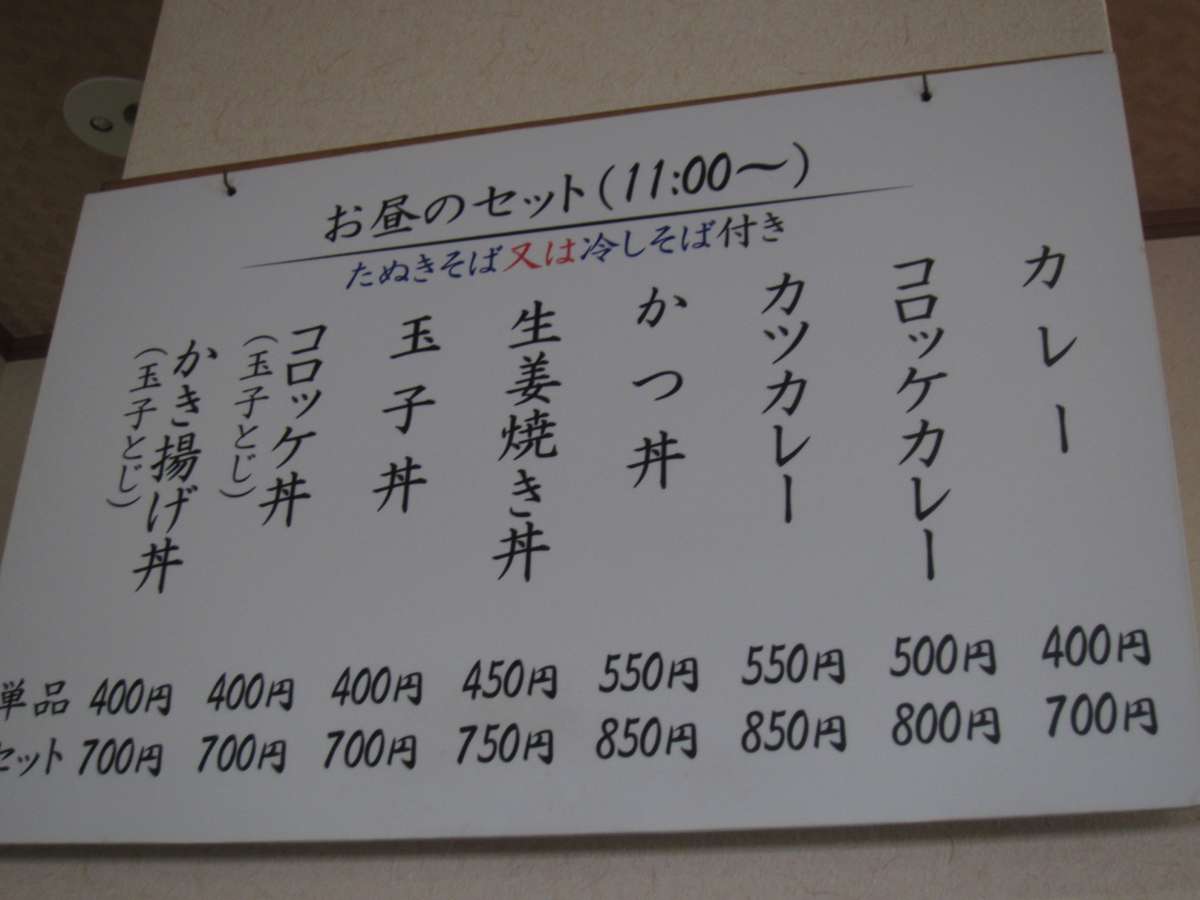 お昼のセット(11:00〜)
たぬきそば又は冷しそば付き
カレー
コロッケカレー
カツカレー
かつ丼
生姜焼き丼
玉子丼
コロッケ丼
(玉子とじ)
かき揚げ丼
(玉子とじ)
単品 400円 400円 400円 450円 550円 550円 500円 400円
セット 700円 700円 700円 750円 850円 850円 800円 700円